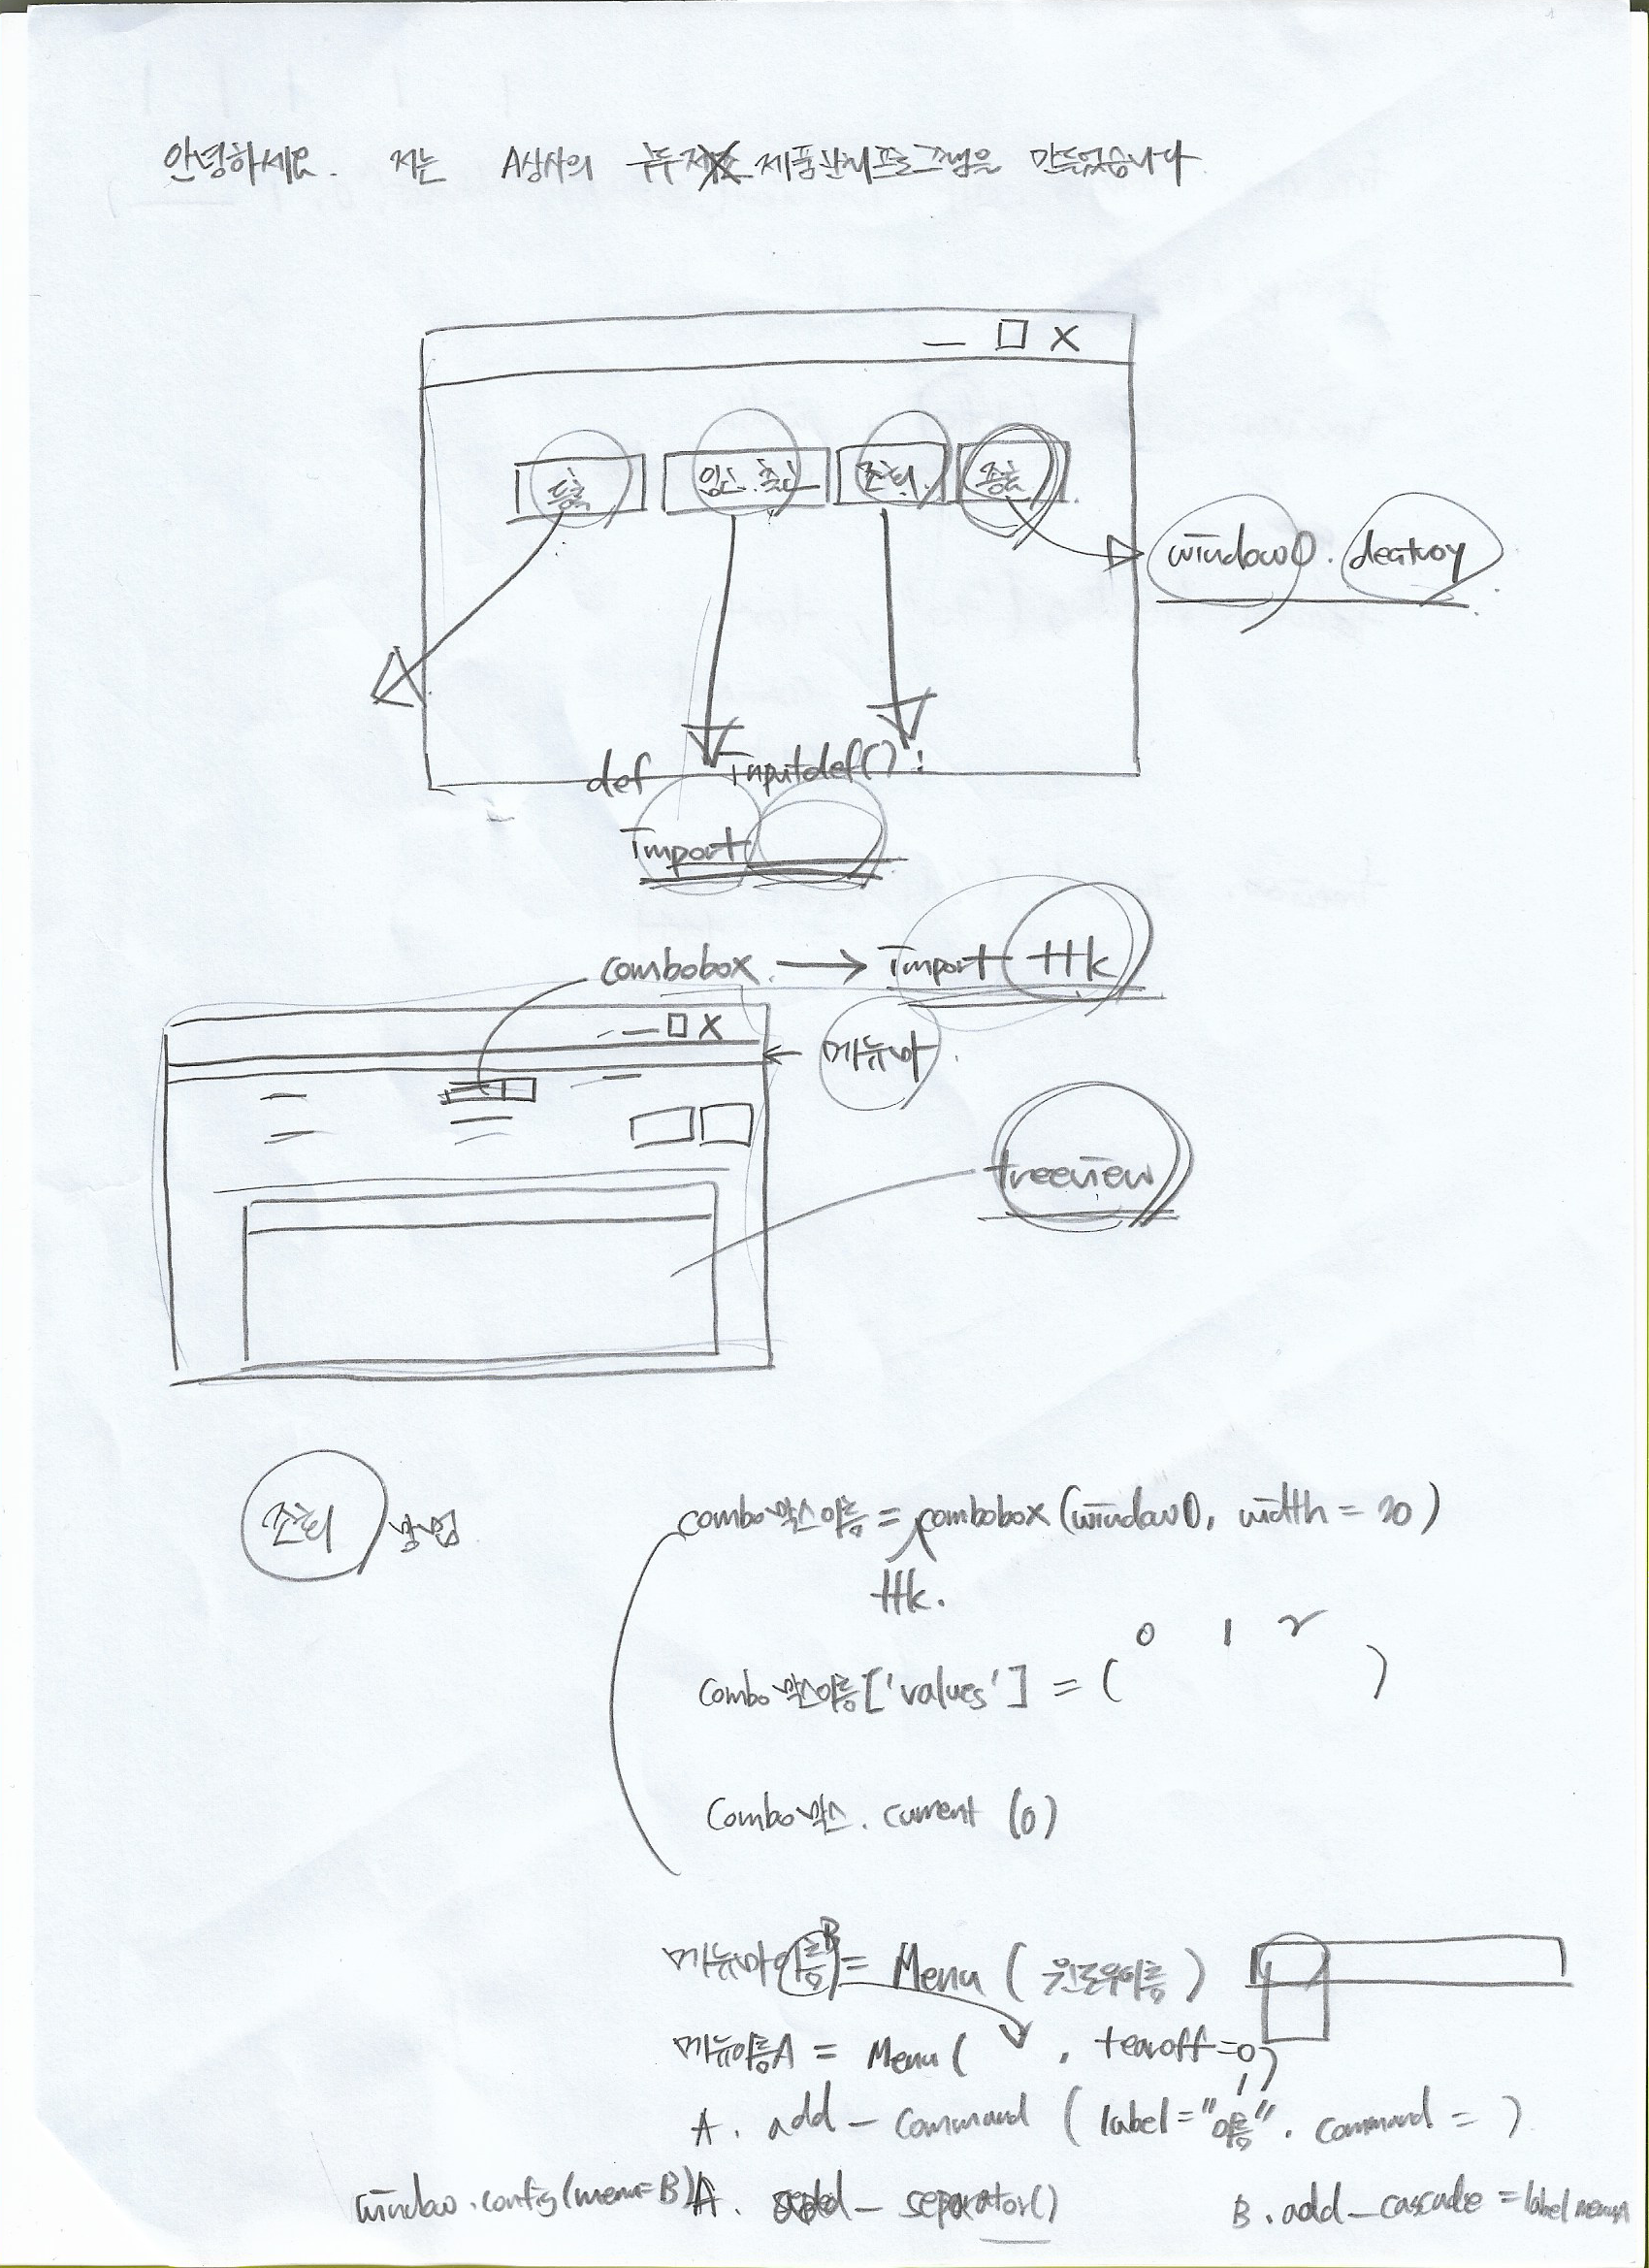 안녕하세요. 저는 A상사의 제품관리프로그램을 만들었습니다
— □ X
등록 입고.출고 조회. 종료
window0. destroy
def inputdef() :
import
combobox. → import ttk
— □ X
메뉴바.
treeview
조회 방법
combo박스이름 = combobox (window0, width = 20)
ttk.
0 1 2
combo박스이름['values'] = ( )
combo박스. current (0)
메뉴바이름B = Menu ( 윈도우이름 )
메뉴이름A = Menu ( , tearoff=0)
1
A. add_command ( label="이름". command = )
window.config(menu=B) A. add_separator() B.add_cascade = label menuA